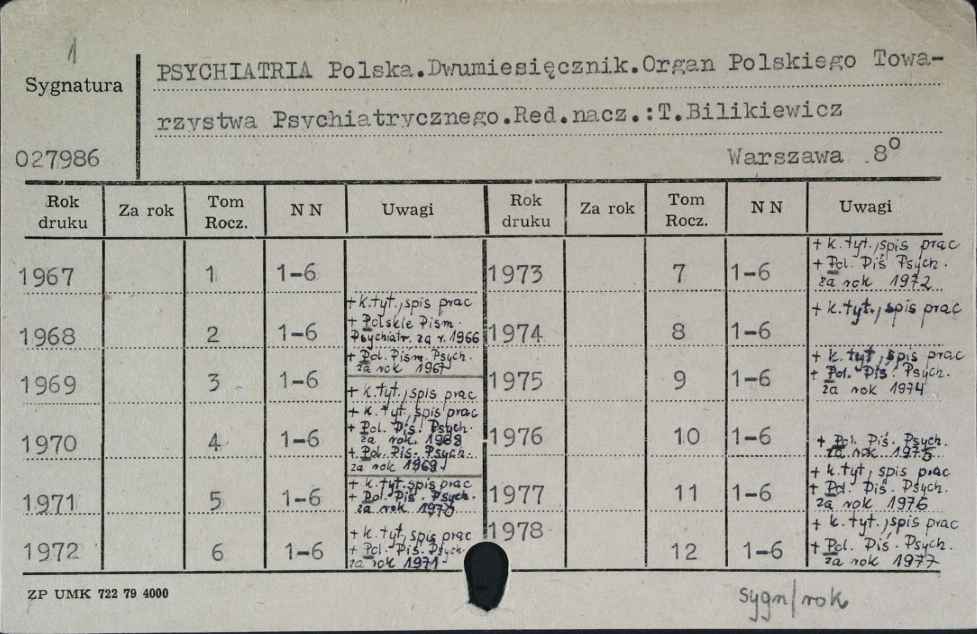 1
Sygnatura
PSYCHIATRIA Polska.Dwumiesięcznik.Organ Polskiego Towa-
rzystwa Psychiatrycznego.Red.nacz.:T.Bilikiewicz
027986
Warszawa 8°
Rok druku Za rok Tom Rocz. N N Uwagi Rok druku Za rok Tom Rocz. N N Uwagi
1967 1 1-6
1968 2 1-6 + k.tyt., spis prac
+ Polskie Pism.
Psychiatr. za r. 1966
1969 3 1-6 + Pol. Pism. Psych.
za rok 1967
+ k.tyt., spis prac
1970 4 1-6 + k. tyt, spis prac
+ Pol. Piś. Psych.
za rok. 1968
+ Pol. Piś. Psych.
za rok 1969
1971 5 1-6 + k. tyt, spis prac
+ Pol. Piś. Psych.
za rok 1970
1972 6 1-6 + k. tyt., spis prac
+ Pol. Piś. Psych.
za rok 1971
1973 7 1-6 + k. tyt., spis prac
+ Pol. Piś Psych.
za rok 1972
1974 8 1-6 + k. tyt., spis prac
1975 9 1-6 + k. tyt, spis prac
+ Pol. Piś. Psych.
za rok 1974
1976 10 1-6 + Pol. Piś. Psych.
za rok 1975
1977 11 1-6 + k. tyt, spis prac
+ Pol. Piś. Psych.
za rok 1976
1978 12 1-6 + k. tyt., spis prac
+ Pol. Piś. Psych.
za rok 1977
ZP UMK 722 79 4000
sygn/rok